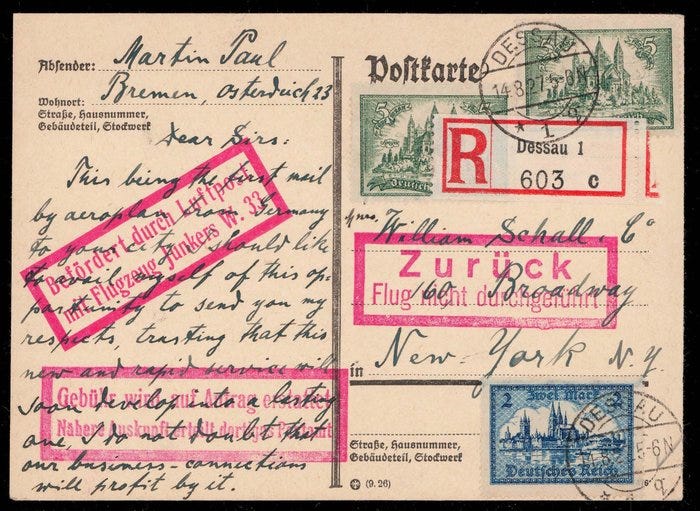 Absender: Martin Paul
Wohnort: Bremen, Osterdeich 23
Straße, Hausnummer,
Gebäudeteil, Stockwerk
Dear Sirs:
This being the first mail
by aeroplan from Germany
to your city I should like
to avail myself of this op-
portunity to send you my
respects, trusting that this
new and rapid service will
soon develop into a lasting
one, I do not doubt that
our business-connections
will profit by it.
Befördert durch Luftpost
mit Flugzeug Junkers W. 33
Gebühr wird auf Antrag erstattet
Nähere Auskunft erteilt dortiges Postamt
Postkarte
DESSAU
14.8.27.5-6N
* 1 q
5 5
5
Deutsches
R
Dessau 1
603 c
William Schall & Co
Zurück
Flug nicht durchgeführt
160 Broadway
in New-York N.Y
Straße, Hausnummer,
Gebäudeteil, Stockwerk
(9.26)
2 Zwei Mark 2
Deutsches Reich
DESSAU
5-6N
q